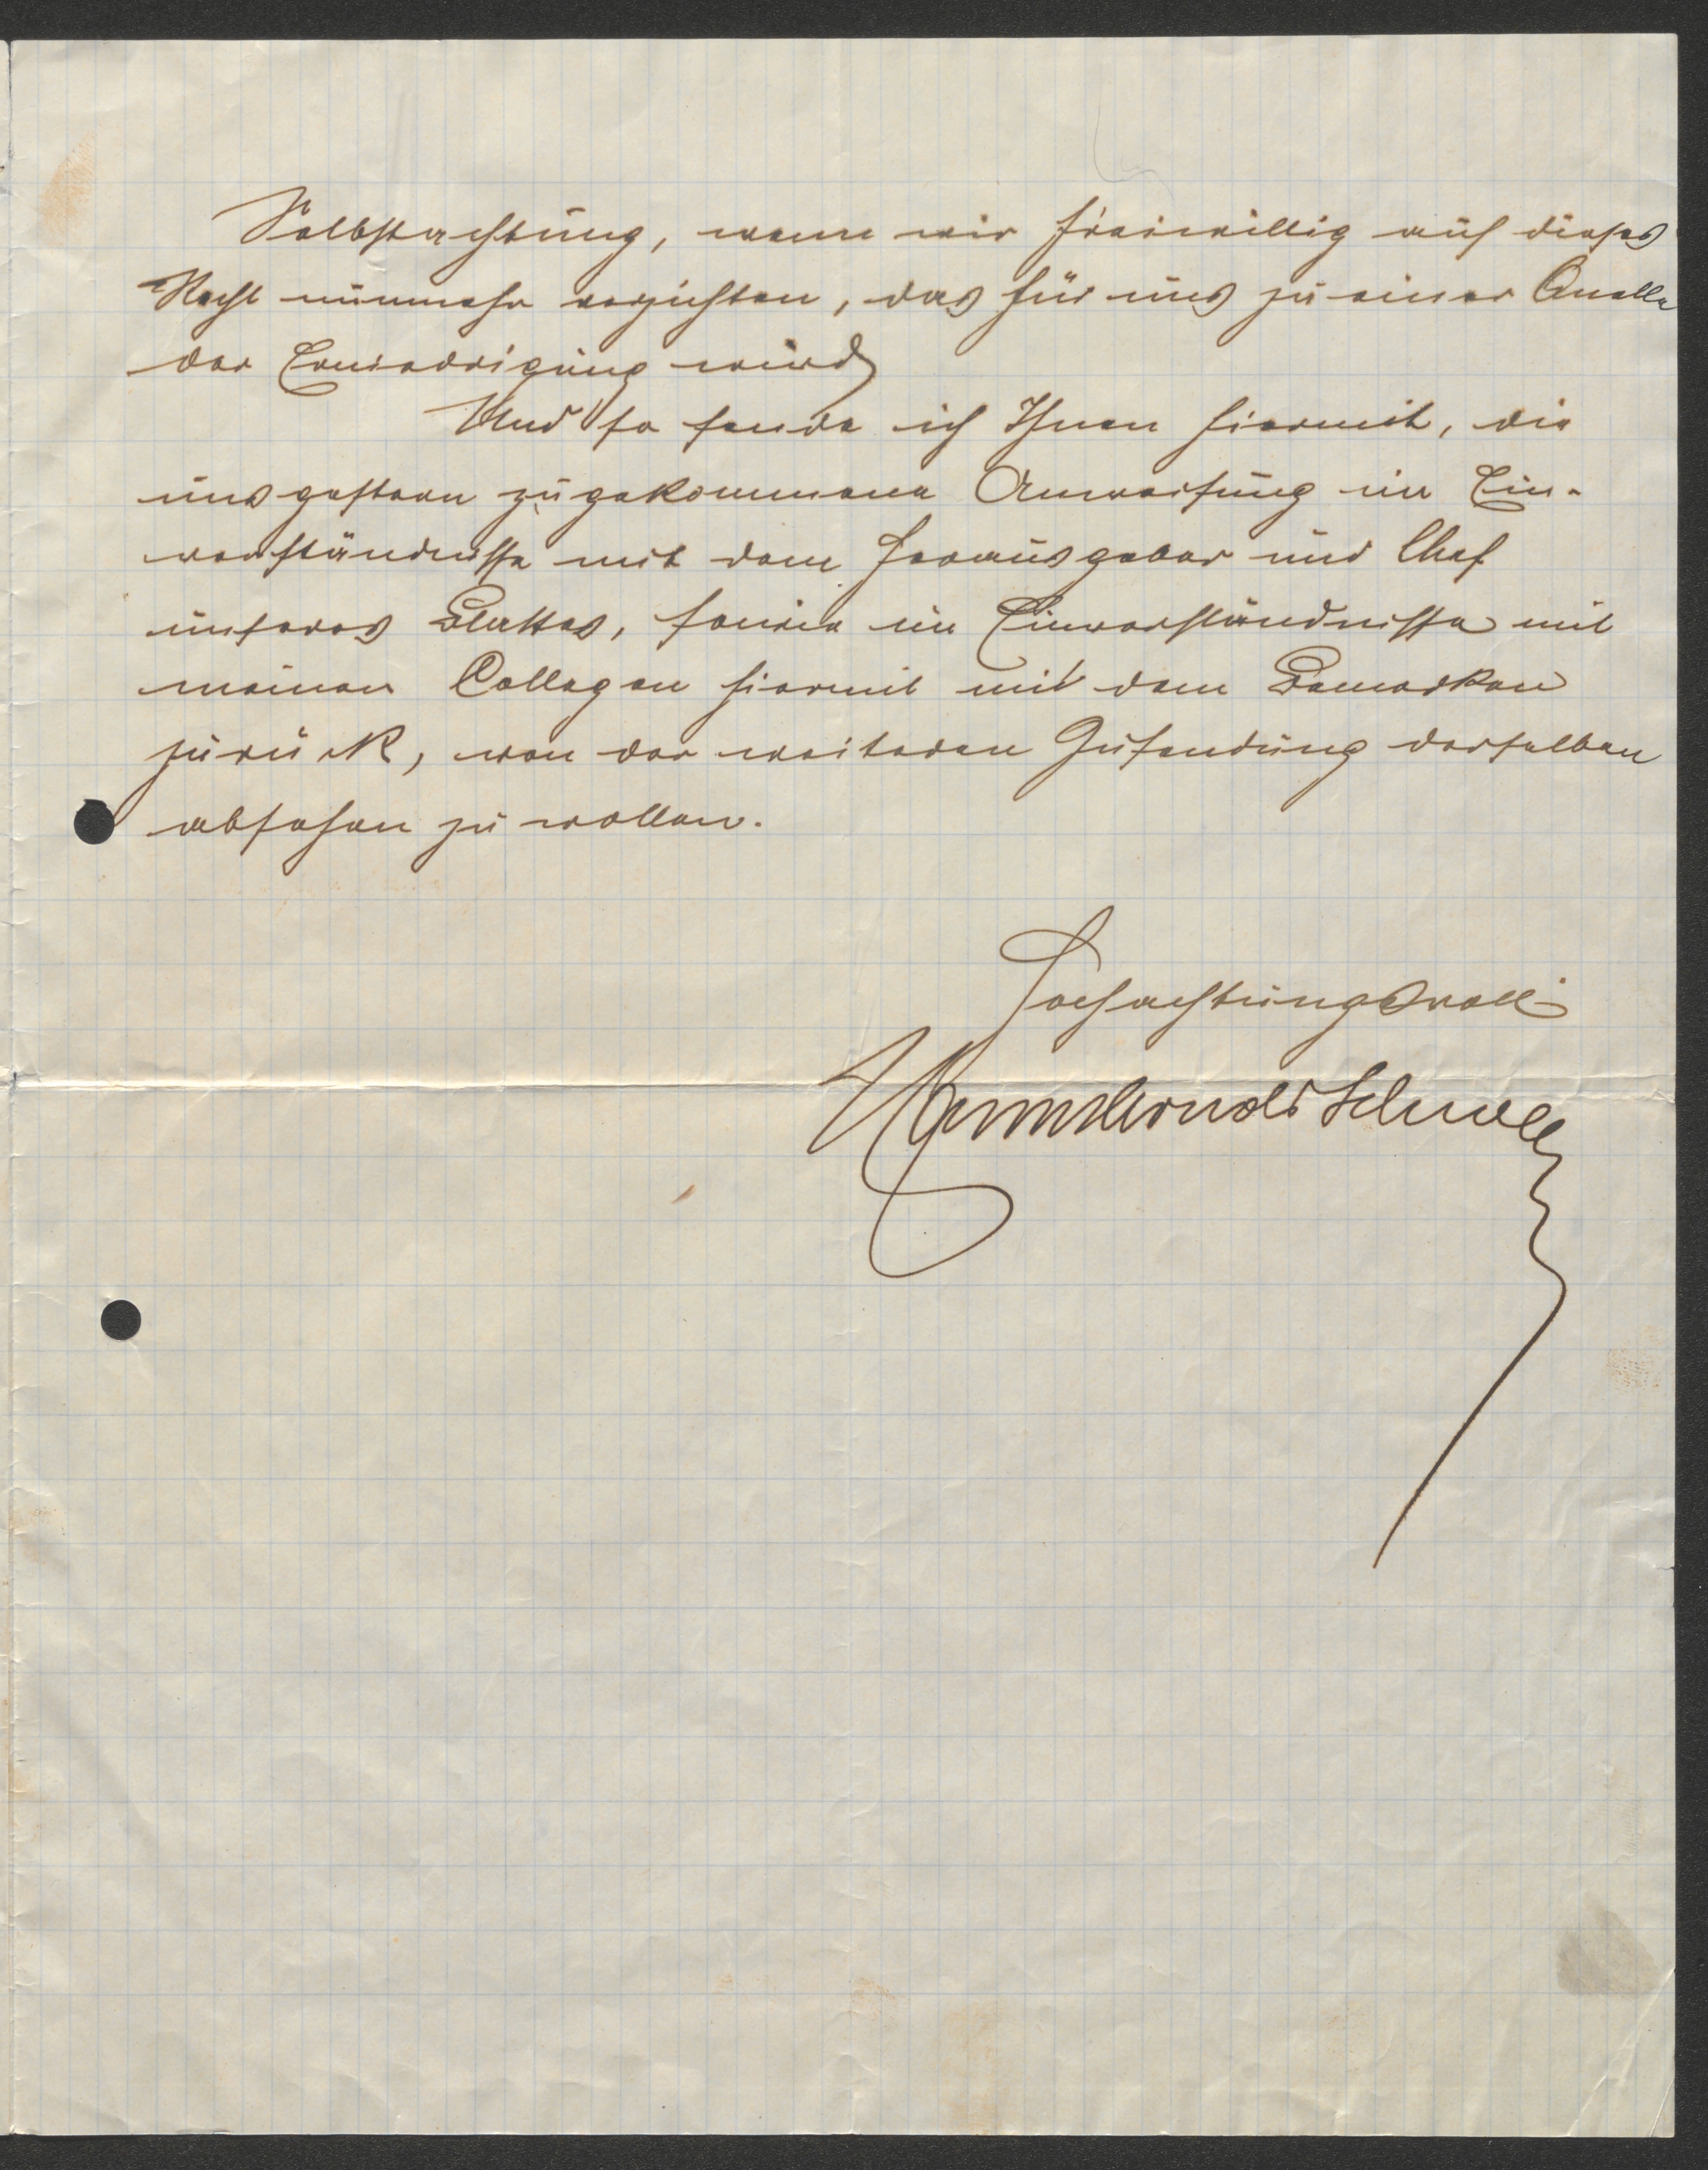 Selbstachtung, wenn wir freiwillig auf dieses
Recht nunmehr verzichten, das für uns zu einer Quelle
der Erniedrigung wird.
Und so sende ich Ihnen hiermit, die
uns gestern zugekommene Anweisung im Ein-
verständnisse mit dem Herausgeber und Chef
unseres Blattes, sowie im Einverständnisse mit
meinen Collegen hiermit mit dem Bemerken
zurück, von der weiteren Zusendung derselben
absehen zu wollen.
Hochachtungsvoll